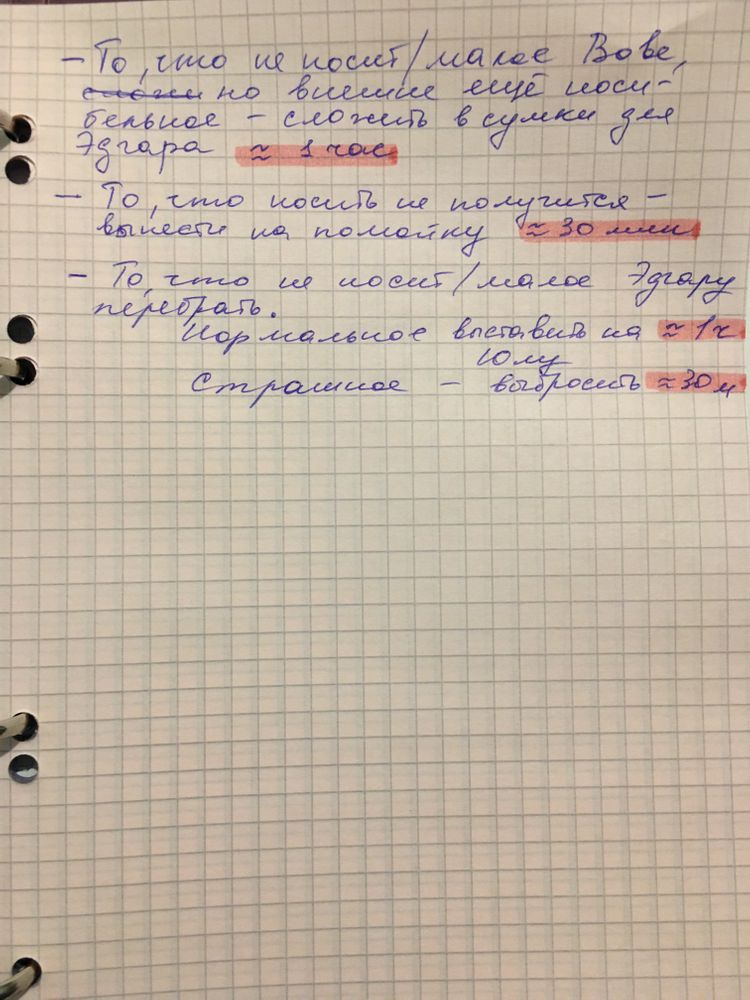 - То, что не носит/малое Вове,
но внешне ещё носи-
бельное - сложить в сумки для
Эдгара ≈ 1 час
- То, что носить не получится -
вынести на помойку ≈ 30 мин
- То, что не носит/малое Эдгару
перебрать.
Нормальное выставить на ≈ 1 ч
Юлу
Страшное - выбросить ≈ 30 м